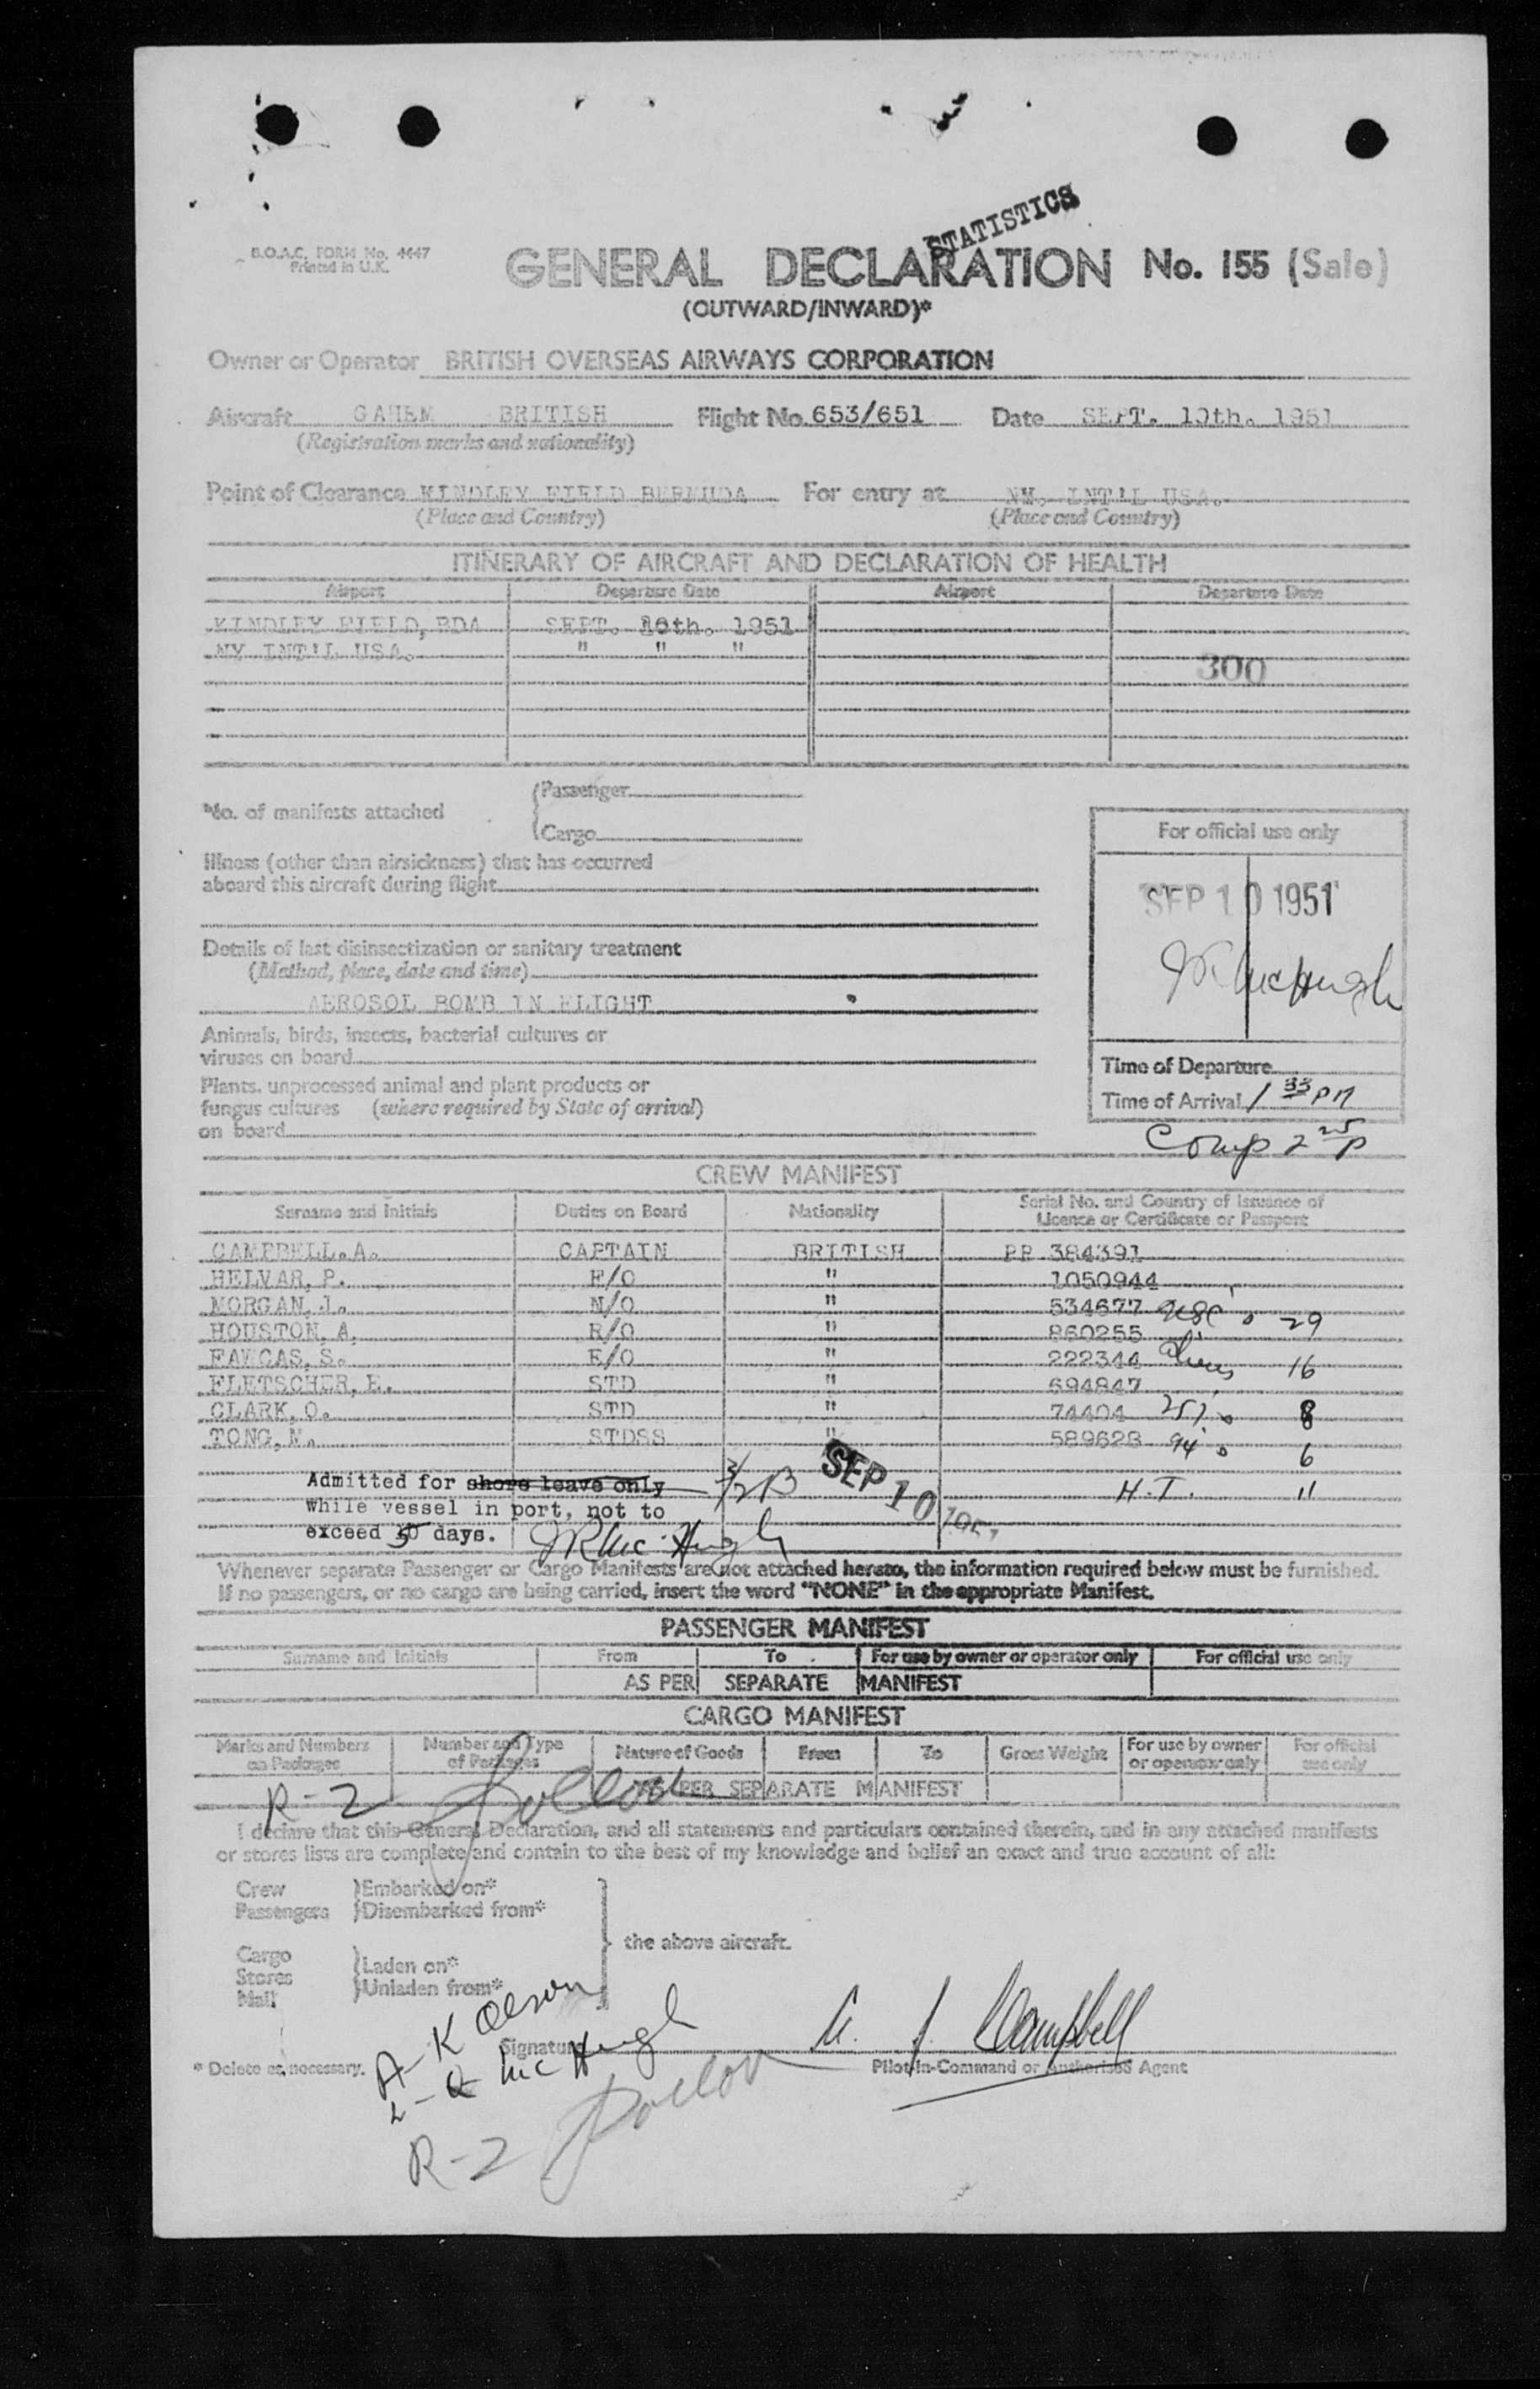 STATISTICS
B.O.A.C. FORM No. 4447
Printed in U.K.
GENERAL DECLARATION No. 155 (Sale)
(OUTWARD/INWARD)*
Owner or Operator BRITISH OVERSEAS AIRWAYS CORPORATION
Aircraft GAHEM BRITISH Flight No. 653/651 Date SEPT. 10th. 1951
(Registration marks and nationality)
Point of Clearance KINDLEY FIELD BERMUDA For entry at NY. INT'L USA.
(Place and Country) (Place and Country)
ITINERARY OF AIRCRAFT AND DECLARATION OF HEALTH
Airport Departure Date Airport Departure Date
KINDLEY FIELD, BDA SEPT. 10th. 1951
NY INT'L USA. " " "
300
*No. of manifests attached
(Passenger
(Cargo
For official use only
Illness (other than airsickness) that has occurred
aboard this aircraft during flight
SEP 10 1951
Details of last disinsectization or sanitary treatment
(Method, place, date and time)
AEROSOL BOMB IN FLIGHT
JR McHugh
Animals, birds, insects, bacterial cultures or
viruses on board
Time of Departure
Plants, unprocessed animal and plant products or
fungus cultures (where required by State of arrival)
on board
Time of Arrival 1 33 PM
Comp 2 25 P
CREW MANIFEST
Surname and Initials Duties on Board Nationality Serial No. and Country of Issuance of
Licence or Certificate or Passport
CAMPBELL. A. CAPTAIN BRITISH PP 384391
HELVAR, P. F/O " 1050944
MORGAN, J. N/O " 534677 USC 29
HOUSTON, A. R/O " 860255
FAWCAS, S. E/O " 222344 Aliens 16
FLETSCHER, E. STD " 694847
CLARK, O. STD " 74404 257 8
TONG, M. STDSS " 589628 94 6
H.T. 11
Admitted for shore leave only
While vessel in port, not to
exceed 30 days.
SEP 10 1951
JR McHugh
Whenever separate Passenger or Cargo Manifests are not attached hereto, the information required below must be furnished.
If no passengers, or no cargo are being carried, insert the word "NONE" in the appropriate Manifest.
PASSENGER MANIFEST
Surname and Initials From To For use by owner or operator only For official use only
AS PER SEPARATE MANIFEST
CARGO MANIFEST
Marks and Numbers on Packages Number and Type of Packages Nature of Goods From To Gross Weight For use by owner or operator only For official use only
AS PER SEPARATE MANIFEST
R-2
I declare that this General Declaration, and all statements and particulars contained therein, and in any attached manifests
or stores lists are complete and contain to the best of my knowledge and belief an exact and true account of all:
Crew }Embarked on*
Passengers }Disembarked from*
the above aircraft.
Cargo }Laden on*
Stores }Unladen from*
Mail
A-K Olson
L-Q McHugh
Signature A. J. Campbell
* Delete as necessary. Pilot-in-Command or Authorised Agent
R-2